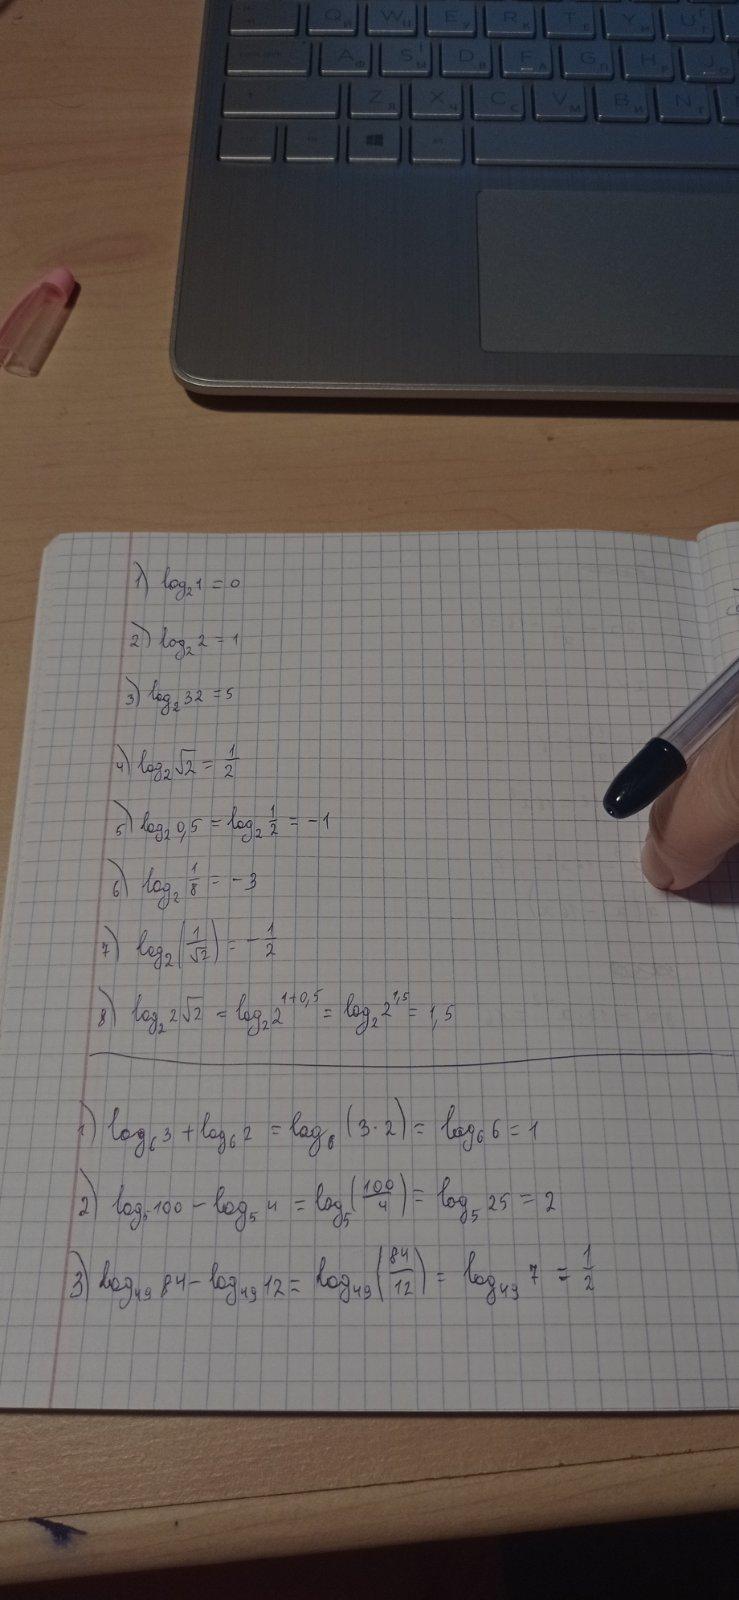 Q Й W Ц E У R К T Е Y Н U Г
A Ф S Ы D В F А G П H Р J О
Z Я X Ч C С V М B И N Т
1) log₂1 = 0
2) log₂2 = 1
3) log₂32 = 5
4) log₂√2 = 1/2
5) log₂0,5 = log₂ 1/2 = -1
6) log₂ 1/8 = -3
7) log₂(1/√2) = -1/2
8) log₂2√2 = log₂2^1+0,5 = log₂2^1,5 = 1,5
1) log₆3 + log₆2 = log₆(3·2) = log₆6 = 1
2) log₅100 - log₅4 = log₅(100/4) = log₅25 = 2
3) log₄₉84 - log₄₉12 = log₄₉(84/12) = log₄₉7 = 1/2